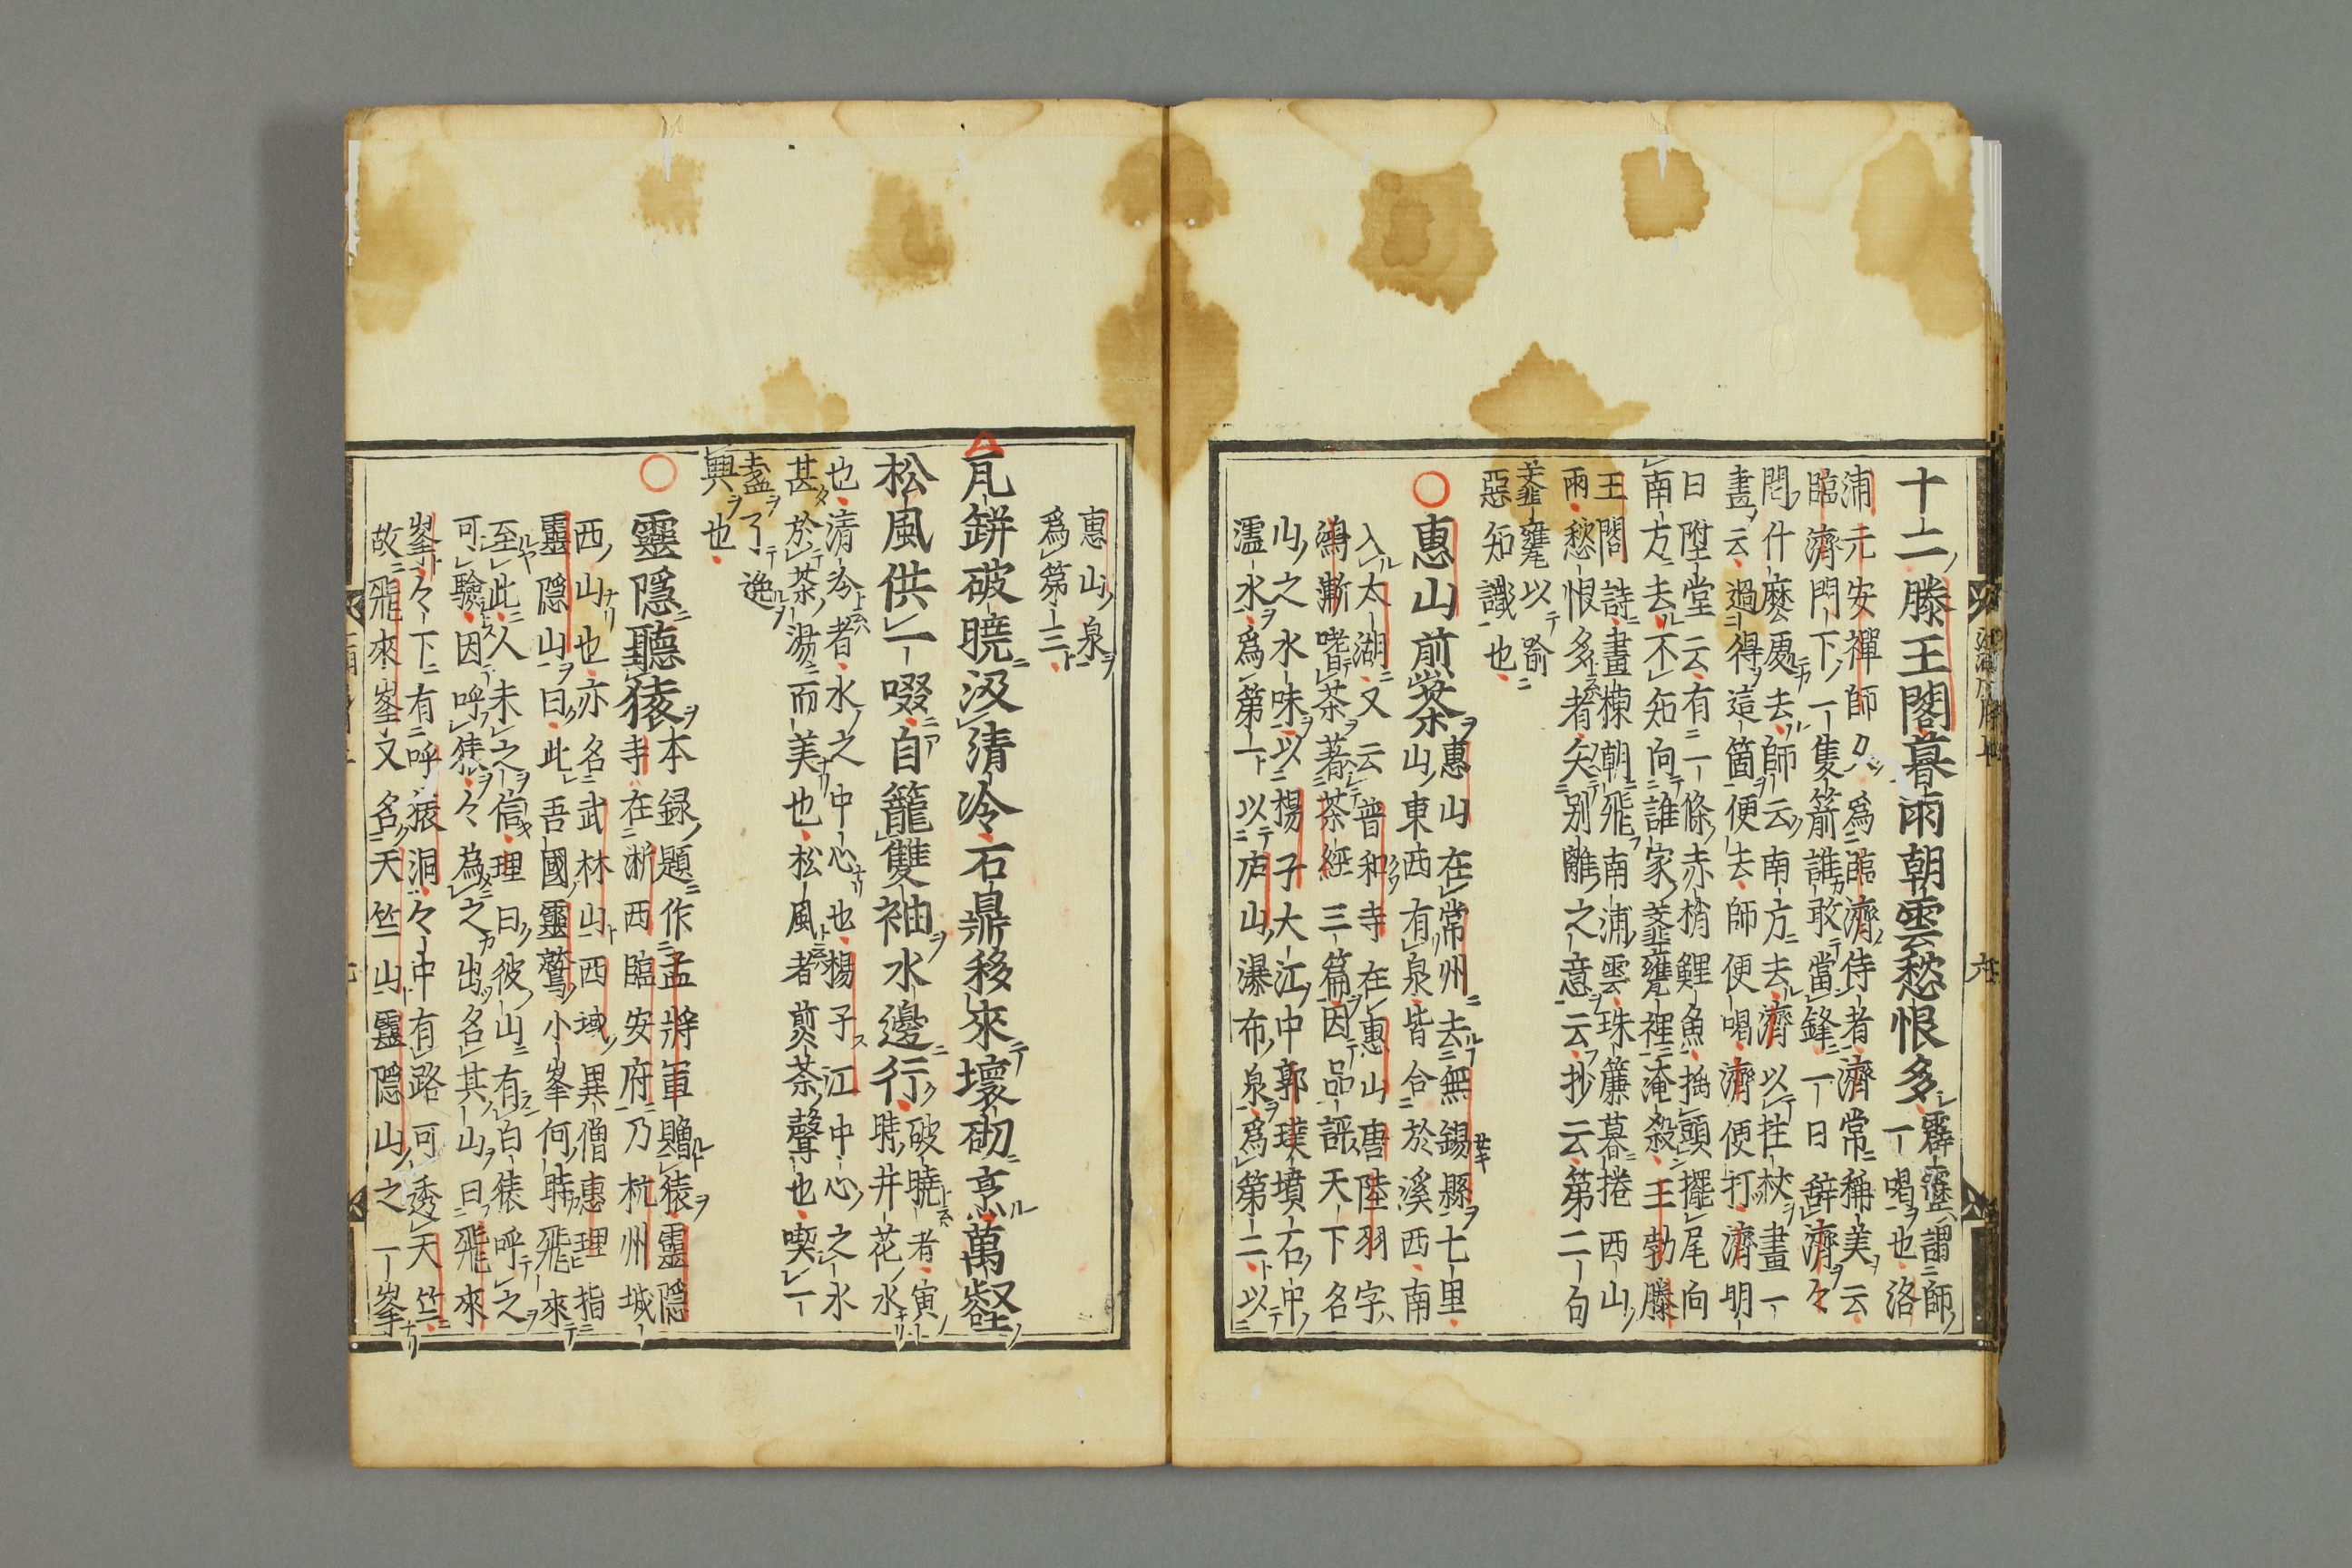 十二滕王閣暮雨朝雲愁恨多霹靂謂師
一喝也洛
浦元安禪師久爲臨濟侍者濟常稱美云
臨濟門下一隻箭誰敢當鋒一日辭濟々
問什麼處去師云南方去濟以拄杖畫一
畫云過得這箇便去師便喝濟便打濟明
日陞堂云有一條赤梢鯉魚搖頭擺尾向
南方去不知向誰家虀甕裡淹殺王勃滕
王閣詩畫棟朝飛南浦雲珠簾暮捲西山
雨愁恨多者矣別離之意云抄云第二句
虀甕以喻
惡知識也
惠山煎茶惠山在常州去無錫縣七里
山東西有泉皆合於溪西南
入太湖又云普和寺在惠山唐陸羽字
鴻漸嗜茶著茶經三篇因品評天下名
山之水味以揚子大江中郭璞墳右中
濡水爲第一以庐山瀑布泉爲第二以
惠山泉
爲第三
瓦缾破曉汲清冷石鼎移來壞砌烹萬壑
松風供一啜自籠雙袖水邊行破曉者寅
時井花水
也清冷者水之中心也楊子江中心之水
甚於茶湯而美也松風者煎茶聲也喫一
盞了逸
興也
靈隱聽猿本録題作孟將軍贈猿靈隱
寺在浙西臨安府乃杭州城
西山也亦名武林山西域異僧惠理指
靈隱山曰此吾國靈鷲小峯何時飛來
至此人未之信理曰彼山有白猿呼之
可驗因呼猿々為之出名其山曰飛來
峯々下有呼猿洞々中有路可透天竺
故飛來峯又名天竺山靈隱山之一峯